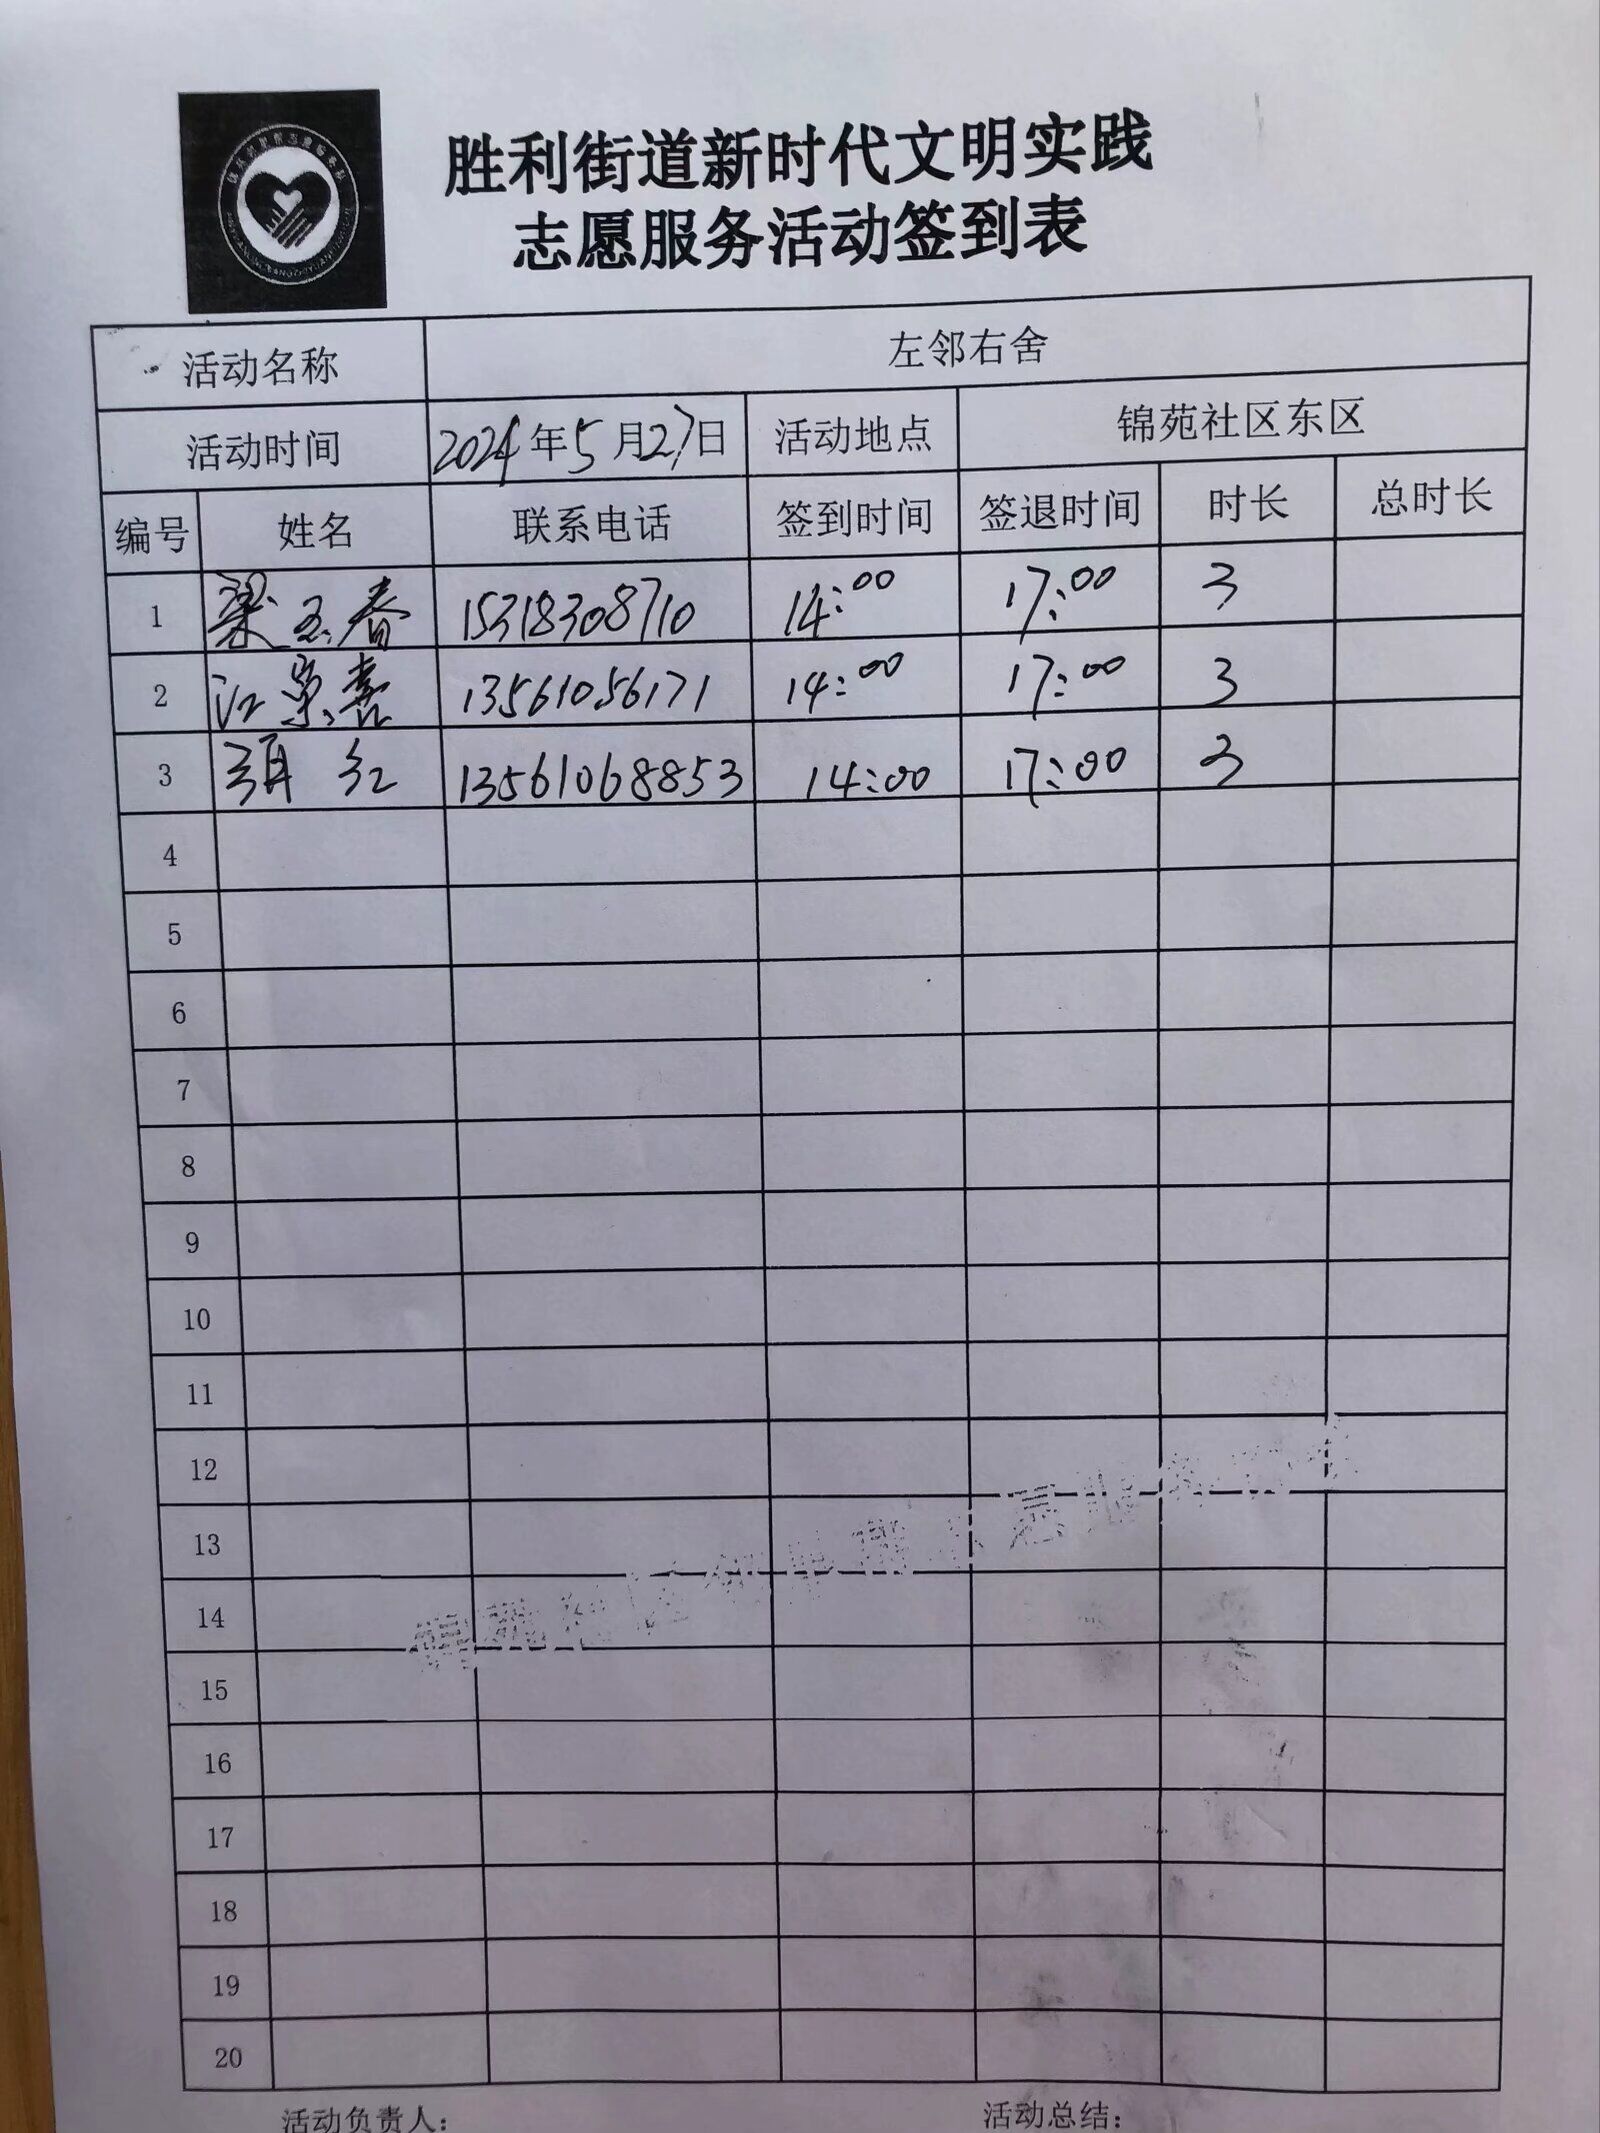 胜利街道新时代文明实践
志愿服务活动签到表
活动名称 左邻右舍
活动时间 2024年5月27日 活动地点 锦苑社区东区
编号 姓名 联系电话 签到时间 签退时间 时长 总时长
1 梁玉春 15318308710 14:00 17:00 3
2 江景喜 13561056171 14:00 17:00 3
3 红 13561068853 14:00 17:00 3
4
5
6
7
8
9
10
11
12
13
14
15
16
17
18
19
20
活动负责人: 活动总结: